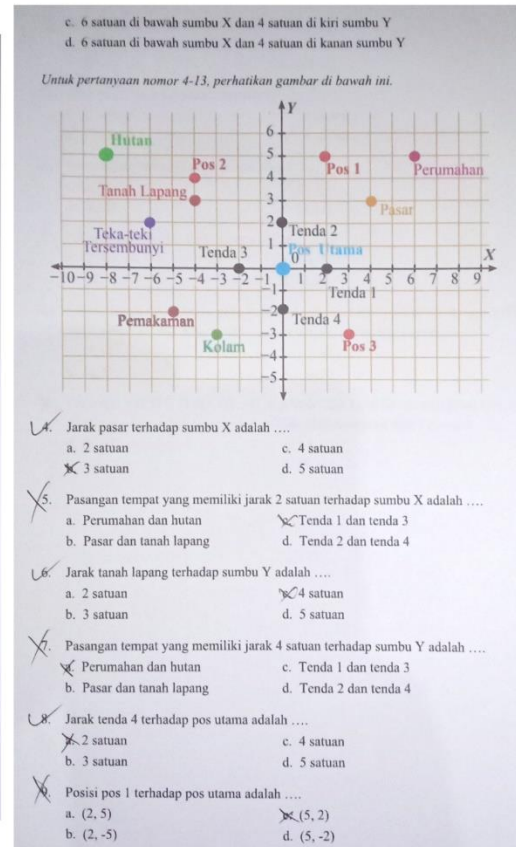 c. 6 satuan di bawah sumbu X dan 4 satuan di kiri sumbu Y
d. 6 satuan di bawah sumbu X dan 4 satuan di kanan sumbu Y
Untuk pertanyaan nomor 4-13, perhatikan gambar di bawah ini.
Y
6
Hutan
5
Pos 2
Pos 1
Perumahan
4
Tanah Lapang
3
Pasar
2
Tenda 2
Teka-teki
Tersembunyi
Tenda 3
1
Pos Utama
X
0
-10 -9 -8 -7 -6 -5 -4 -3 -2 -1 1 2 3 4 5 6 7 8 9
-1
Tenda 1
-2
Pemakaman
Tenda 4
-3
Kolam
Pos 3
-4
-5
4. Jarak pasar terhadap sumbu X adalah ....
a. 2 satuan c. 4 satuan
3 satuan d. 5 satuan
5. Pasangan tempat yang memiliki jarak 2 satuan terhadap sumbu X adalah ....
a. Perumahan dan hutan c. Tenda 1 dan tenda 3
b. Pasar dan tanah lapang d. Tenda 2 dan tenda 4
6. Jarak tanah lapang terhadap sumbu Y adalah ....
a. 2 satuan c. 4 satuan
b. 3 satuan d. 5 satuan
7. Pasangan tempat yang memiliki jarak 4 satuan terhadap sumbu Y adalah ....
a. Perumahan dan hutan c. Tenda 1 dan tenda 3
b. Pasar dan tanah lapang d. Tenda 2 dan tenda 4
8. Jarak tenda 4 terhadap pos utama adalah ....
a. 2 satuan c. 4 satuan
b. 3 satuan d. 5 satuan
9. Posisi pos 1 terhadap pos utama adalah ....
a. (2, 5) c. (5, 2)
b. (2, -5) d. (5, -2)